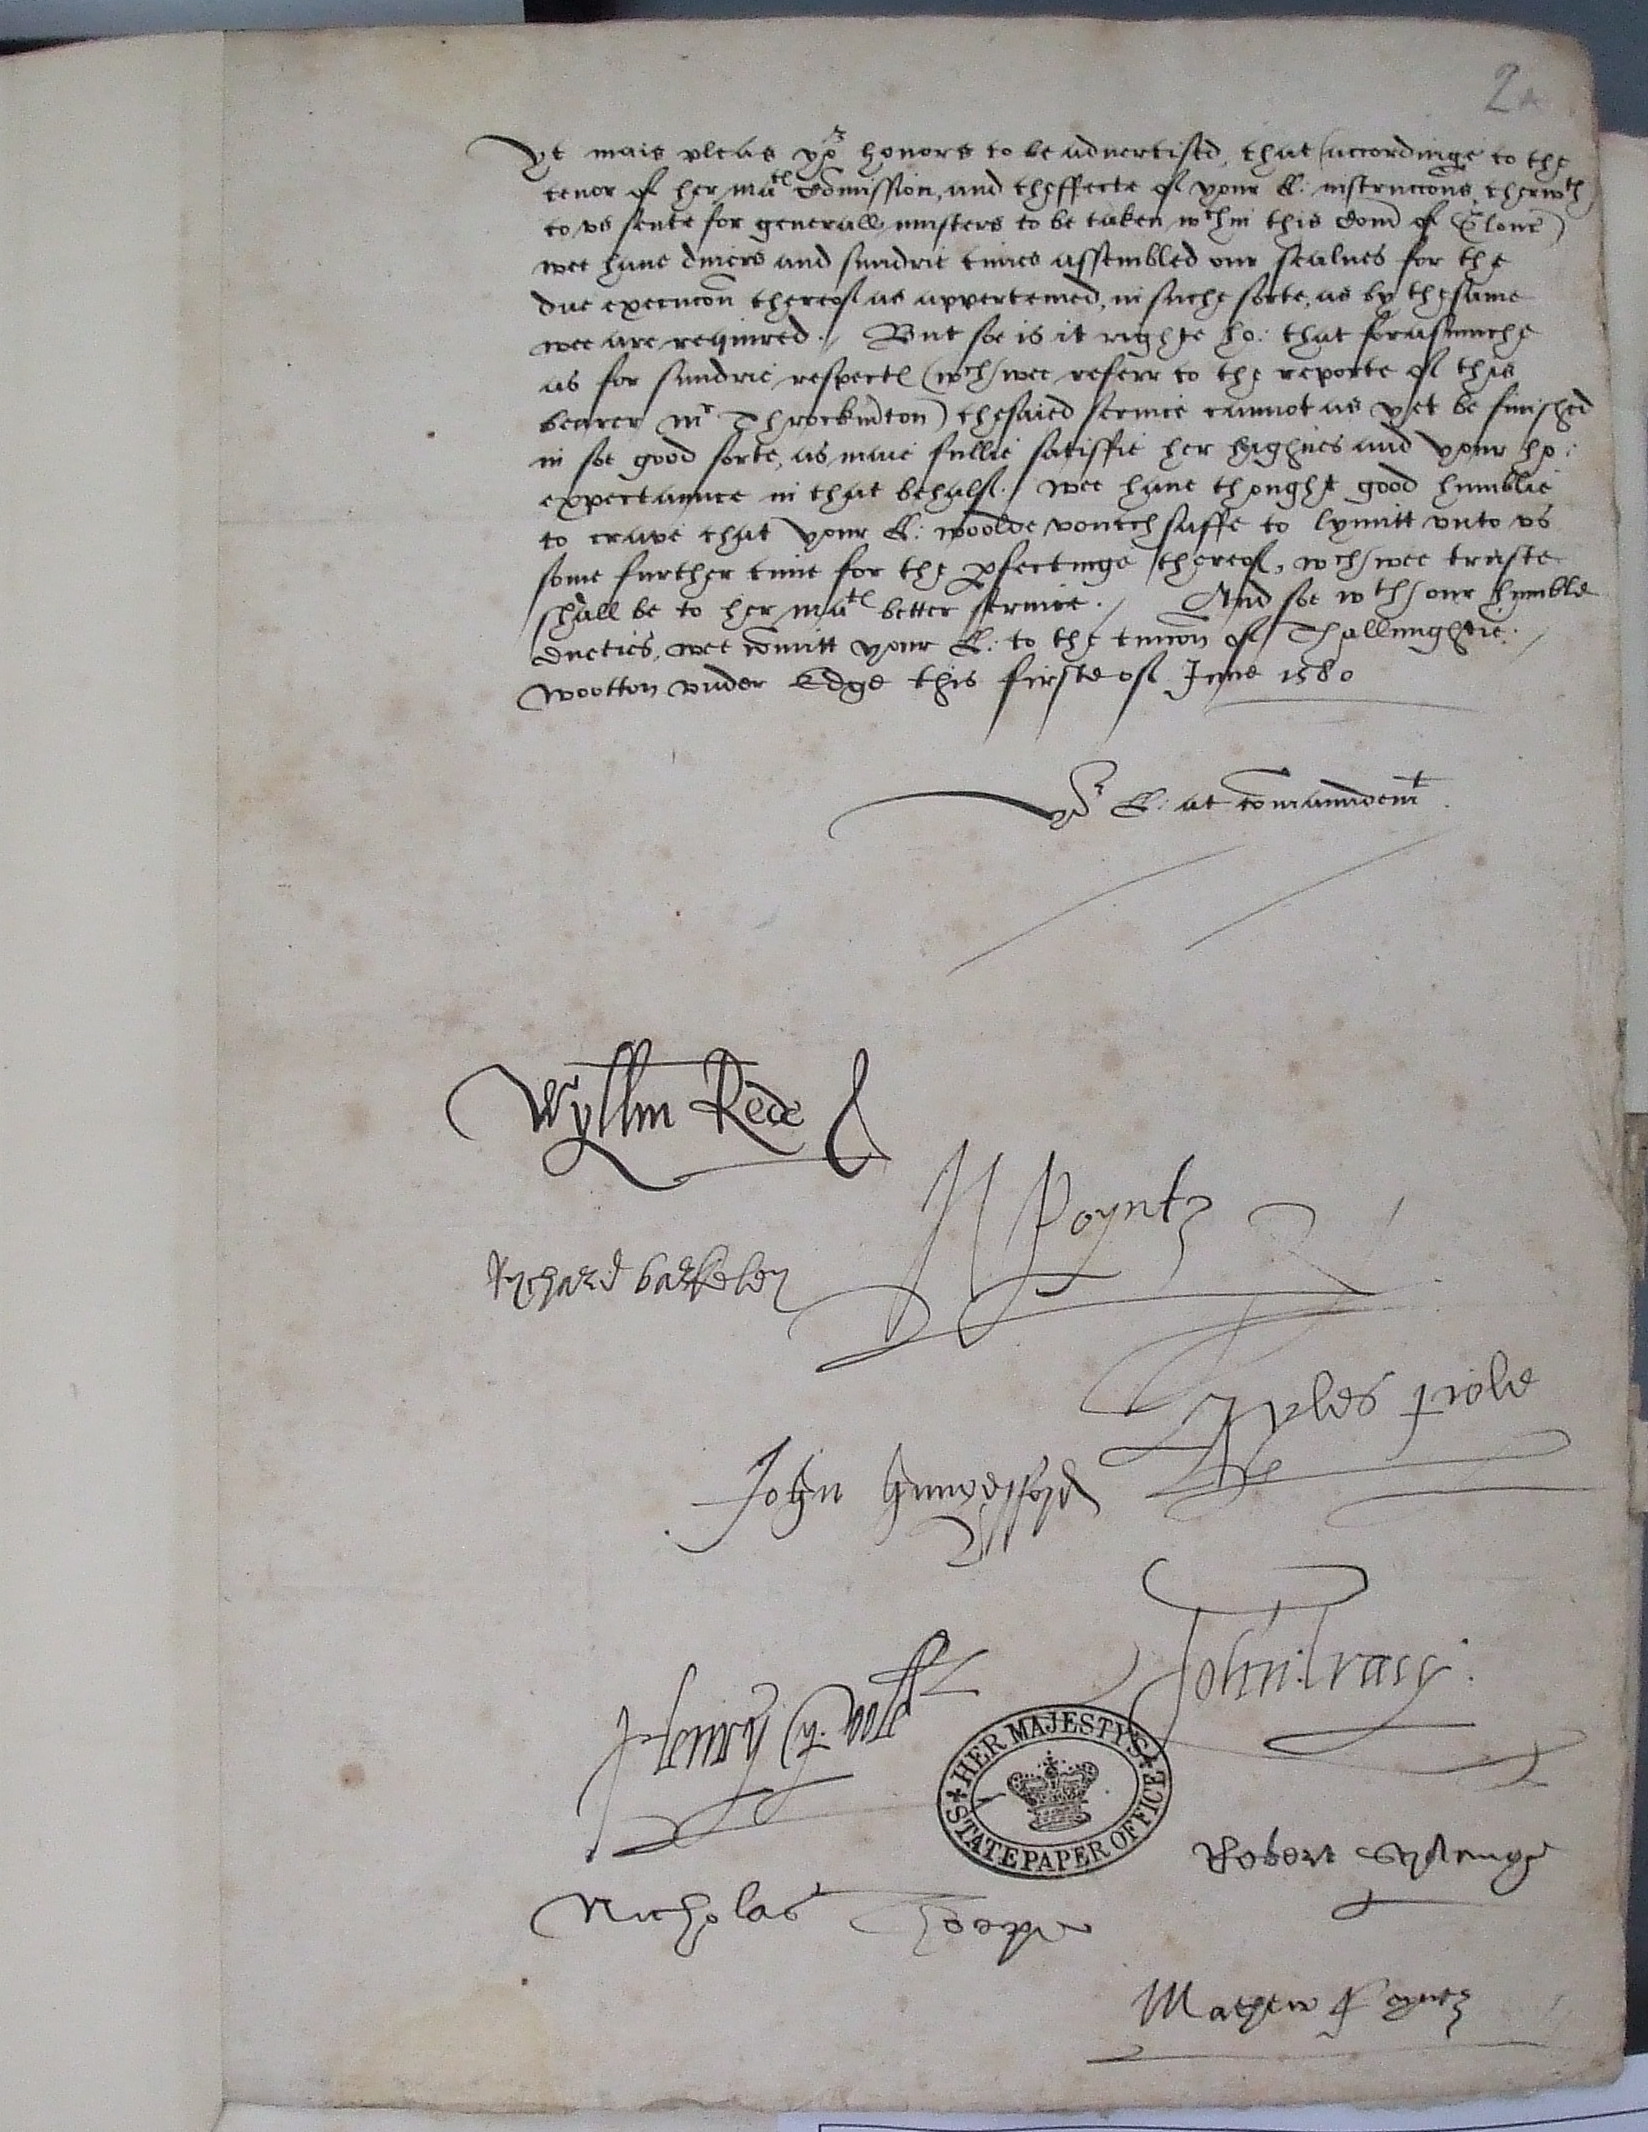 2
Yt maie pleas yor honors to be advertised, that (accordinge to the
tenor of her matie Comission, and theffecte of your L: instruccons, therwth
to vs sente for generall musters to be taken wthin this Com of Glouc)
wee have divers and sundrie times assembled our sealves for the
due execucon thereof as apperteined, in suche sorte, as by thesame
wee are required. / But soe is it righte ho: that forasmuche
as for sundrie respects (wch wee referr to the reporte of this
bearer Mr Throckmton) thesaied service cannot as yet be finished
in soe good sorte, as maie fullie satisfie her highnes and your ho:
expectaunce in that behalf. / wee have thought good humblie
to crave that your L: woolde voutchsaffe to lymitt vnto vs
some further time for the pfectinge thereof, wch wee truste
shall be to her matie better service. / And soe wth our humble
dueties, wee comitt your L: to the tuicon of Thallmightie. /
Wootton vnder Edge this firste of June 1580
yor L: at comaundemt
Wyllm Rede
N Poyntz
Rychard barkeley
Gyles poole
John hungerford
John: Tracy
HER MAJESTY'S STATE PAPER OFFICE
Robert Strange
Nicholas
Mathew Poyntz